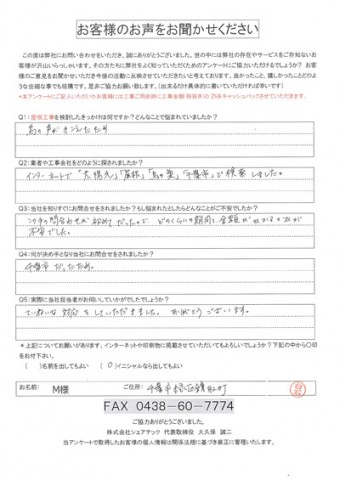 お客様のお声をお聞かせください
この度は弊社にお問い合わせをいただき、誠にありがとうございました。世の中には弊社の存在やサービスをご存知ないお
客様が沢山いらっしゃいます。その方たちに弊社をもっと知っていただくためのアンケートにご協力いただけるでしょうか？お客
様のご意見をお聞かせいただき今後の活動に反映させていただきたいと考えております。良かったこと、嬉しかったことどのよ
うな些細な事でも結構です。是非ご協力お願い致します。（出来るだけ具体的に書いていただければ幸いです）
Q1：屋根工事を検討したきっかけは何ですか？どんなことで悩まれていましたか？
鳥の声がきこえたため
Q2：業者や工事会社をどのように探されましたか？
インターネートで「太陽光」「屋根」「鳥の巣」「千葉市」で検索しました。
Q3：当社を知りすぐにお問合せをされましたか？もし悩まれたとしたらどんなことがご不安でしたか？
問合わせが初めてだったので、どのくらいの期間と金額がかかるのかが
不安でした。
Q4：何が決め手となり当社にお問合せをされましたか？
千葉市だったため。
Q5：実際に当社担当者がお伺いしていかがでしたでしょうか？
ていねいな対応をしていただきました。ありがとうございます。
＊上記についてお願いがあります、インターネットや印刷物に掲載させていただいてもよろしいでしょうか？下記の中から〇印
をお付け下さい。
（　）名前を出してもよい　（〇）イニシャルなら出してもよい
お名前：　M様　ご住所：　千葉市緑区鎌取町
FAX 0438-60-7774
ご協力ありがとうございました。
株式会社シェアテック 代表取締役 大久保 誠二
当アンケートで取得したお客様の個人情報は関係法規に基づき厳正に管理いたします。